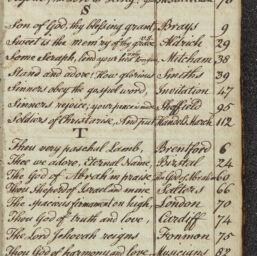 S
Son of God, thy blessing grant, Brays 9
Sweet is the mem'ry of thy grace Aldrich 29
Some Seraph, lend your Mitcham 38
Stand and adore! how glorious Smiths 39
Sinners obey the gospel word, Invitation 47
Sinners rejoice, your peace Sheffield 95
Soldiers of Christ arise, And put Handel's March 112
T
Thou very paschal Lamb, Brentford 6
Thee we adore, Eternal Name, Bristol 24
The God of Abrah'm praise 60
Thou Shepherd of Israel and mine 66
The spacious firmament on high, London 70
Thou God of truth and love, Cardiff 74
The Lord Jehovah reigns Fonmon 75
Thou God of harmony and love Musicians 82